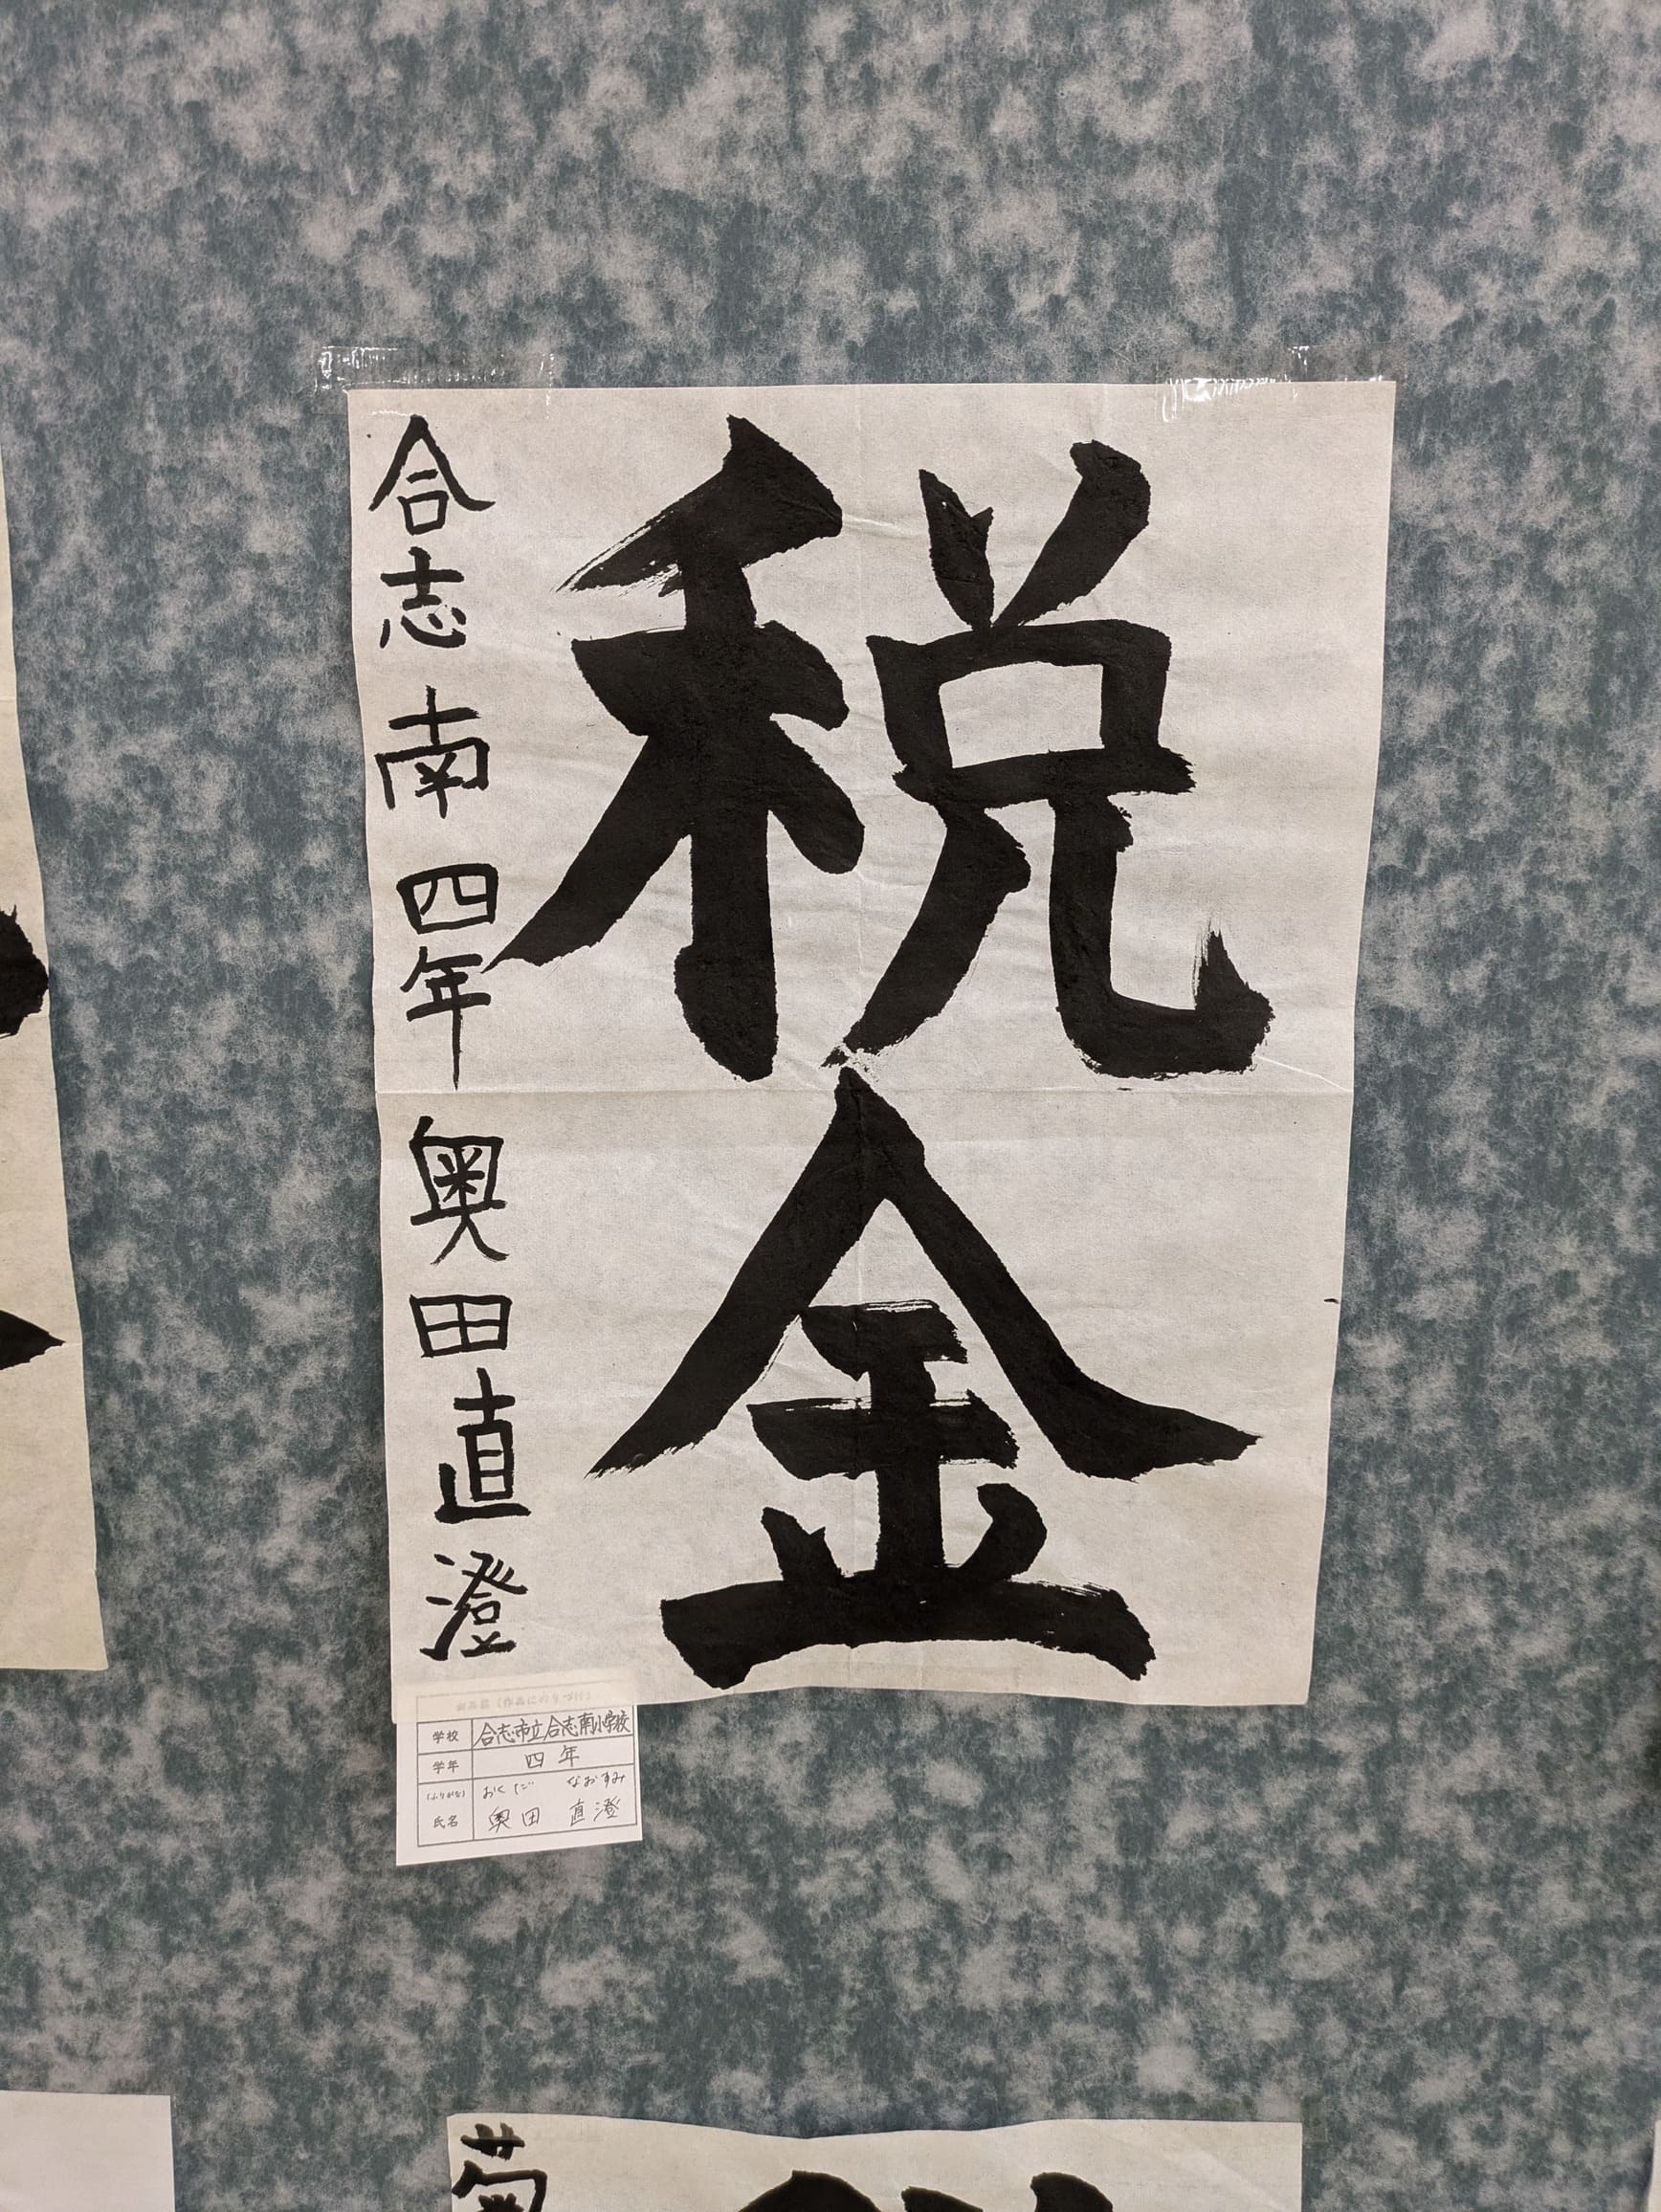 税金
合志南四年 奥田直澄
出品票（作品にのりづけ）
学校 合志市立合志南小学校
学年 四年
（ふりがな） おくだ なおすみ
氏名 奥田 直澄
菊